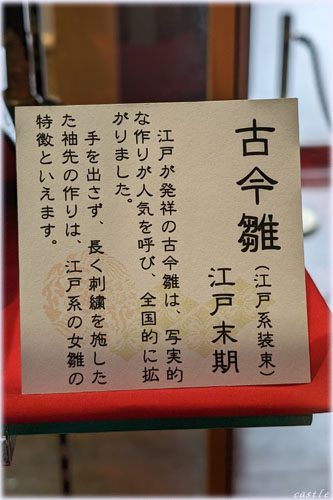 古今雛(江戸系装束)
江戸末期
江戸が発祥の古今雛は、写実的
な作りが人気を呼び、全国的に拡
がりました。
手を出さず、長く刺繍を施し
た袖先の作りは、江戸系の女雛の
特徴といえます。
castle